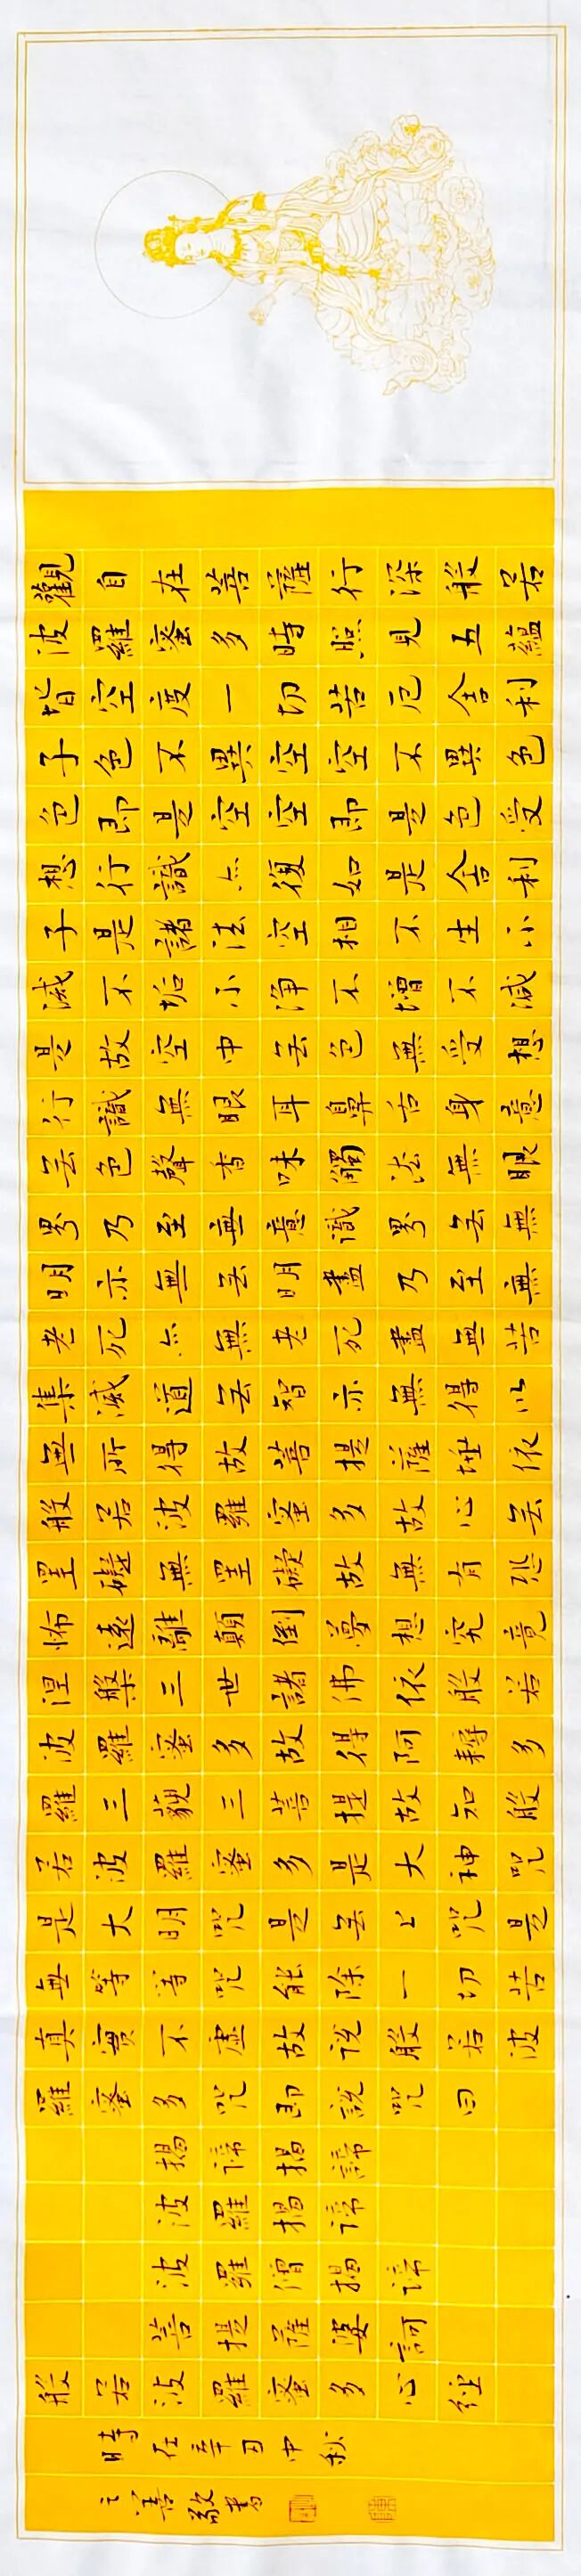 觀自在菩薩行深般若
波羅蜜多時照見五蘊
皆空度一切苦厄舍利
子色不異空空不異色
色即是空空即是色受
想行識亦復如是舍利
子是諸法空相不生不
滅不垢不淨不增不減
是故空中无色無受想
行識無眼耳鼻舌身意
无色聲香味觸法無眼
界乃至無意識界无無
明亦無无明盡乃至無
老死亦無老死盡無苦
集滅道无智亦無得以
無所得故菩提薩埵依
般若波羅蜜多故心无
罣礙無罣礙故無有恐
怖遠離顛倒夢想究竟
涅槃三世諸佛依般若
波羅蜜多故得阿耨多
羅三藐三菩提故知般
若波羅蜜多是大神咒
是大明咒是无上咒是
無等等咒能除一切苦
真實不虛故说般若波
羅蜜多咒即說咒曰
揭諦揭諦
波羅揭諦
波羅僧揭諦
菩提薩婆訶
般若波羅蜜多心經
時在辛丑中秋
之善敬書